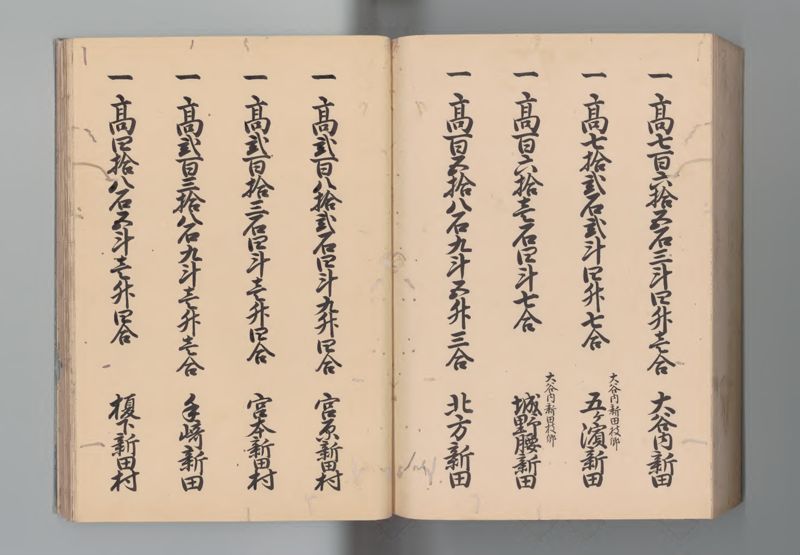 一 高七百六拾五石三斗四升壱合 大谷内新田
一 高七拾弐石弐斗四升七合 大谷内新田枝郷 五ヶ濱新田
一 高百六拾壱石四斗七合 大谷内新田枝郷 城野腰新田
一 高百五拾八石九斗五升三合 北方新田
一 高弐百八拾弐石四斗九升四合 宮原新田村
一 高弐百拾三石四斗壱升四合 宮本新田村
一 高弐百三拾八石九斗壱升壱合 手崎新田
一 高四拾八石五斗壱升四合 榎下新田村